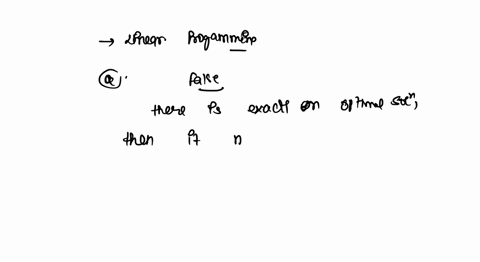 → Linear Progamming
(a). False
there is exact on optimal solⁿ,
then it n